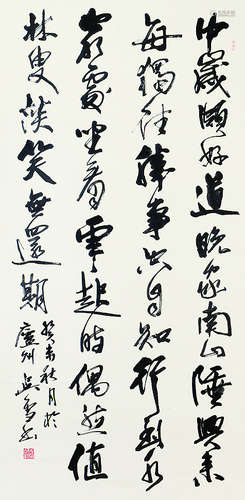 中歲頗好道晚家南山陲興来
每獨往勝事空自知行到水
窮處坐看雲起時偶然值
林叟談笑無還期
癸未秋月於
廣州